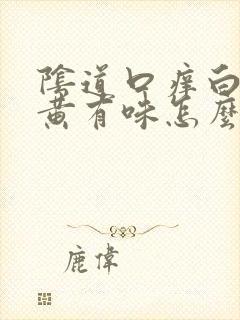 陰道口癢白
黃有味怎麼
鹿偉